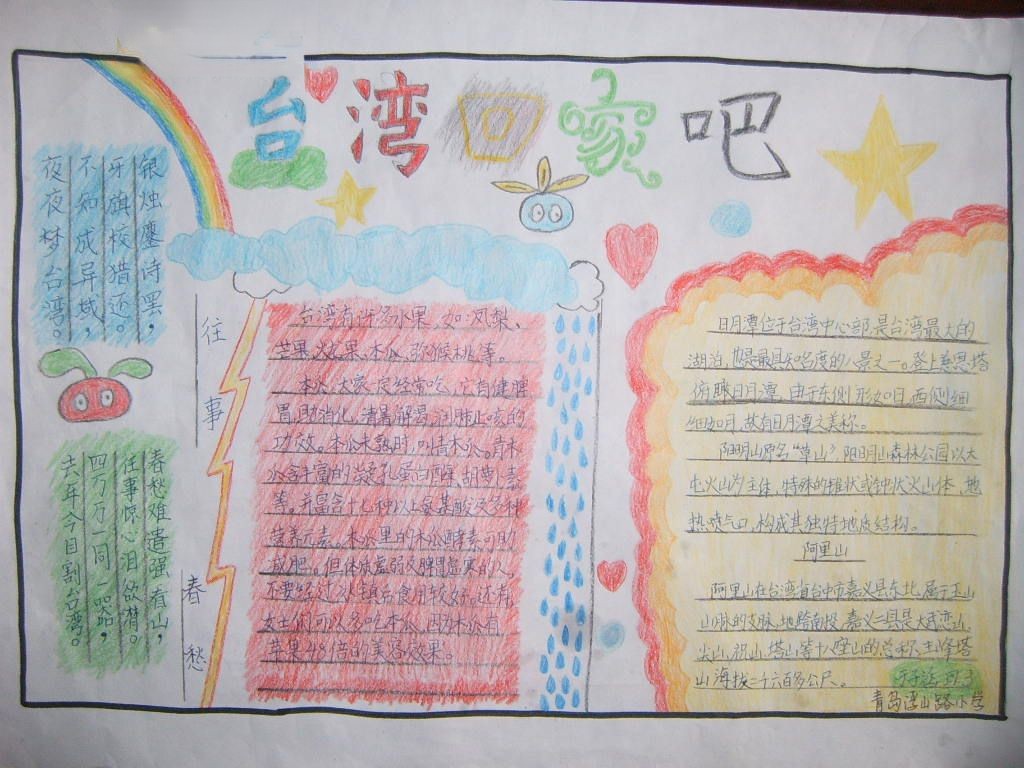 台湾回家吧
银烛鏖诗罢，
牙旗校猎还。
不知成异域，
夜夜梦台湾。
往事
春愁难遣强看山，
往事惊心泪欲潸。
四万万同一哭，
去年今日割台湾。
春愁
台湾有许多水果，如：凤梨、
芒果、火龙果、木瓜、弥猴桃等。
木瓜，大家一定经常吃，它有健脾
胃、助消化、清暑解渴、润肺止咳的
功效。木瓜未熟时，叫青木瓜。青木
瓜含丰富的凝乳蛋白酶、胡萝卜素
等。并富含十七种以上氨基酸及多种
营养元素。木瓜里的木瓜酵素可助
减肥。但体质虚弱及脾胃虚寒的人，
不要经过冰镇后食用较好。还有
女士们可以多吃木瓜，因为木瓜有
苹果48倍的美容效果。
日月潭位于台湾中心部，是台湾最大的
湖泊，也是最具知名度的八景之一。登上慈恩塔
俯瞰日月潭，由于东侧形如日，西侧细
细如月，故有日月潭之美称。
阳明山原名“草山”，阳明山森林公园以大
屯火山为主体，特殊的锥状或钟状火山体、地
热喷气口，构成其独特地质结构。
阿里山
阿里山在台湾省台中市嘉义县东北，属于玉山
山脉的支脉，地跨南投、嘉义二县，是大武峦山、
尖山、祝山、塔山等十八座山的总称，主峰塔
山海拔二千六百多公尺。
青岛山路小学